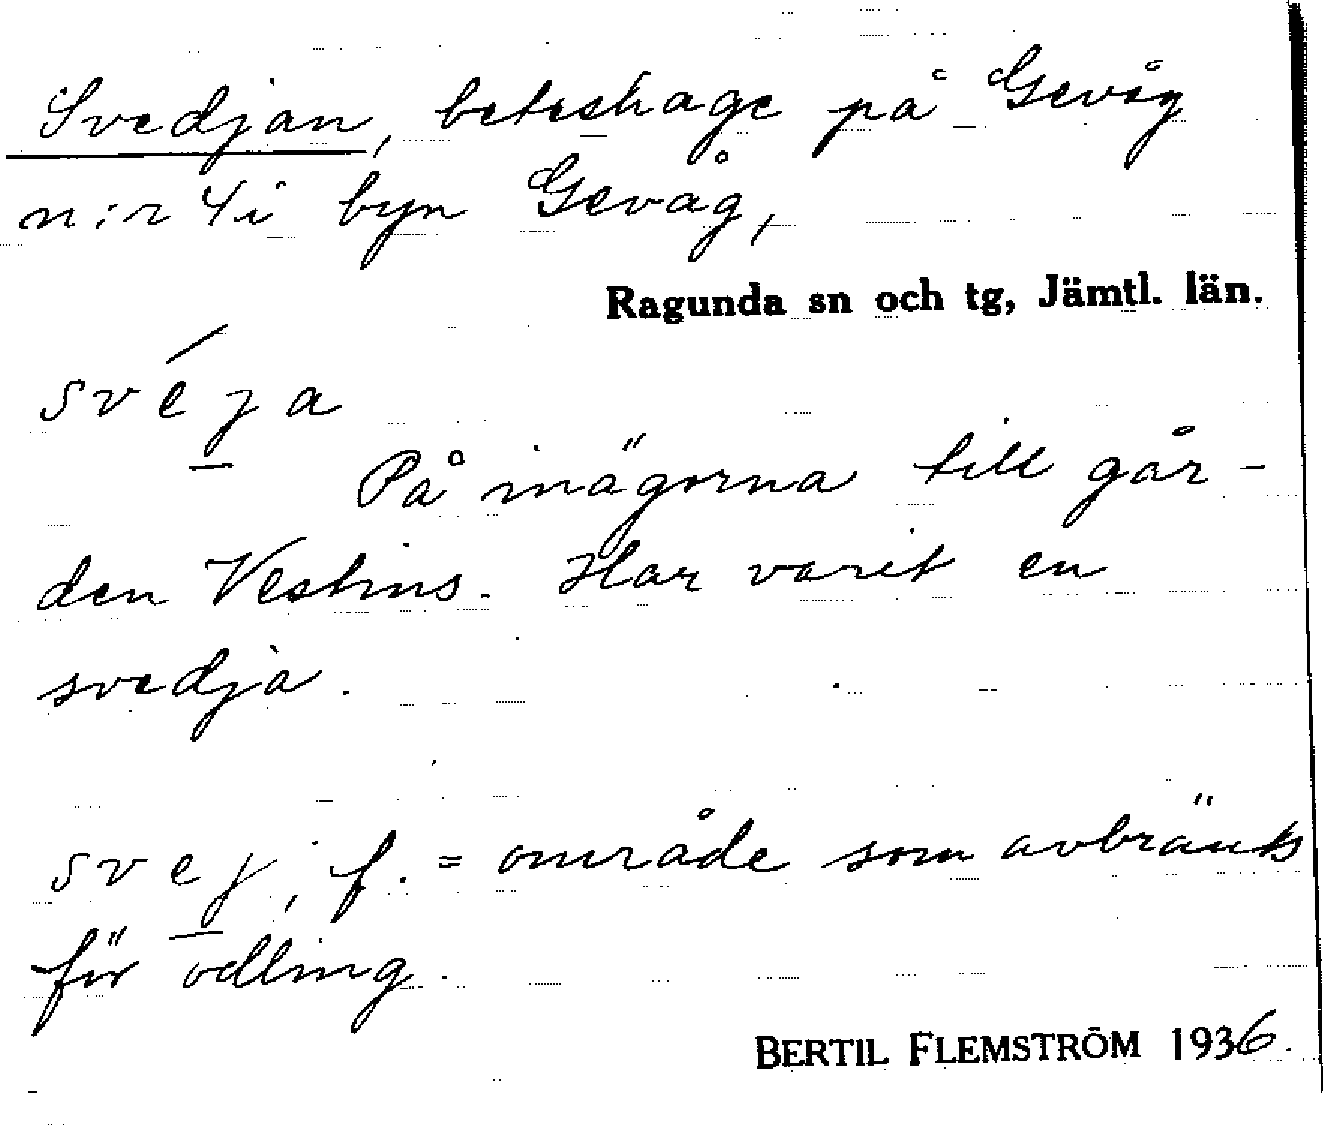 Svedjan, beteshage på Gevåg
n:r 4 i byn Gevåg,
Ragunda sn och tg, Jämtl. län.
svéȷa
På inägorna till går-
den Vestins. Har varit en
svedja.
sveȷ, f. = område som avbränts
för odling.
BERTIL FLEMSTRÖM 1936.